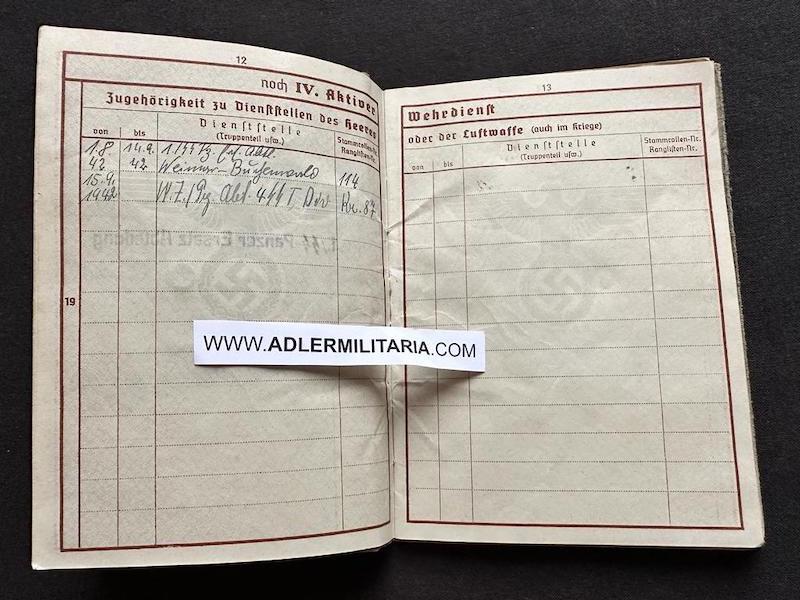 12
noch IV. Aktiver
Zugehörigkeit zu Dienststellen des Heeres
von bis Dienststelle (Truppenteil usw.) Stammrollen-Nr. Ranglisten-Nr.
1.8. 42 14.9. 42
Weimar-Buchenwald 114
15.9. 1942
19
WWW.ADLERMILITARIA.COM
13
Wehrdienst
oder der Luftwaffe (auch im Kriege)
von bis Dienststelle (Truppenteil usw.) Stammrollen-Nr. Ranglisten-Nr.